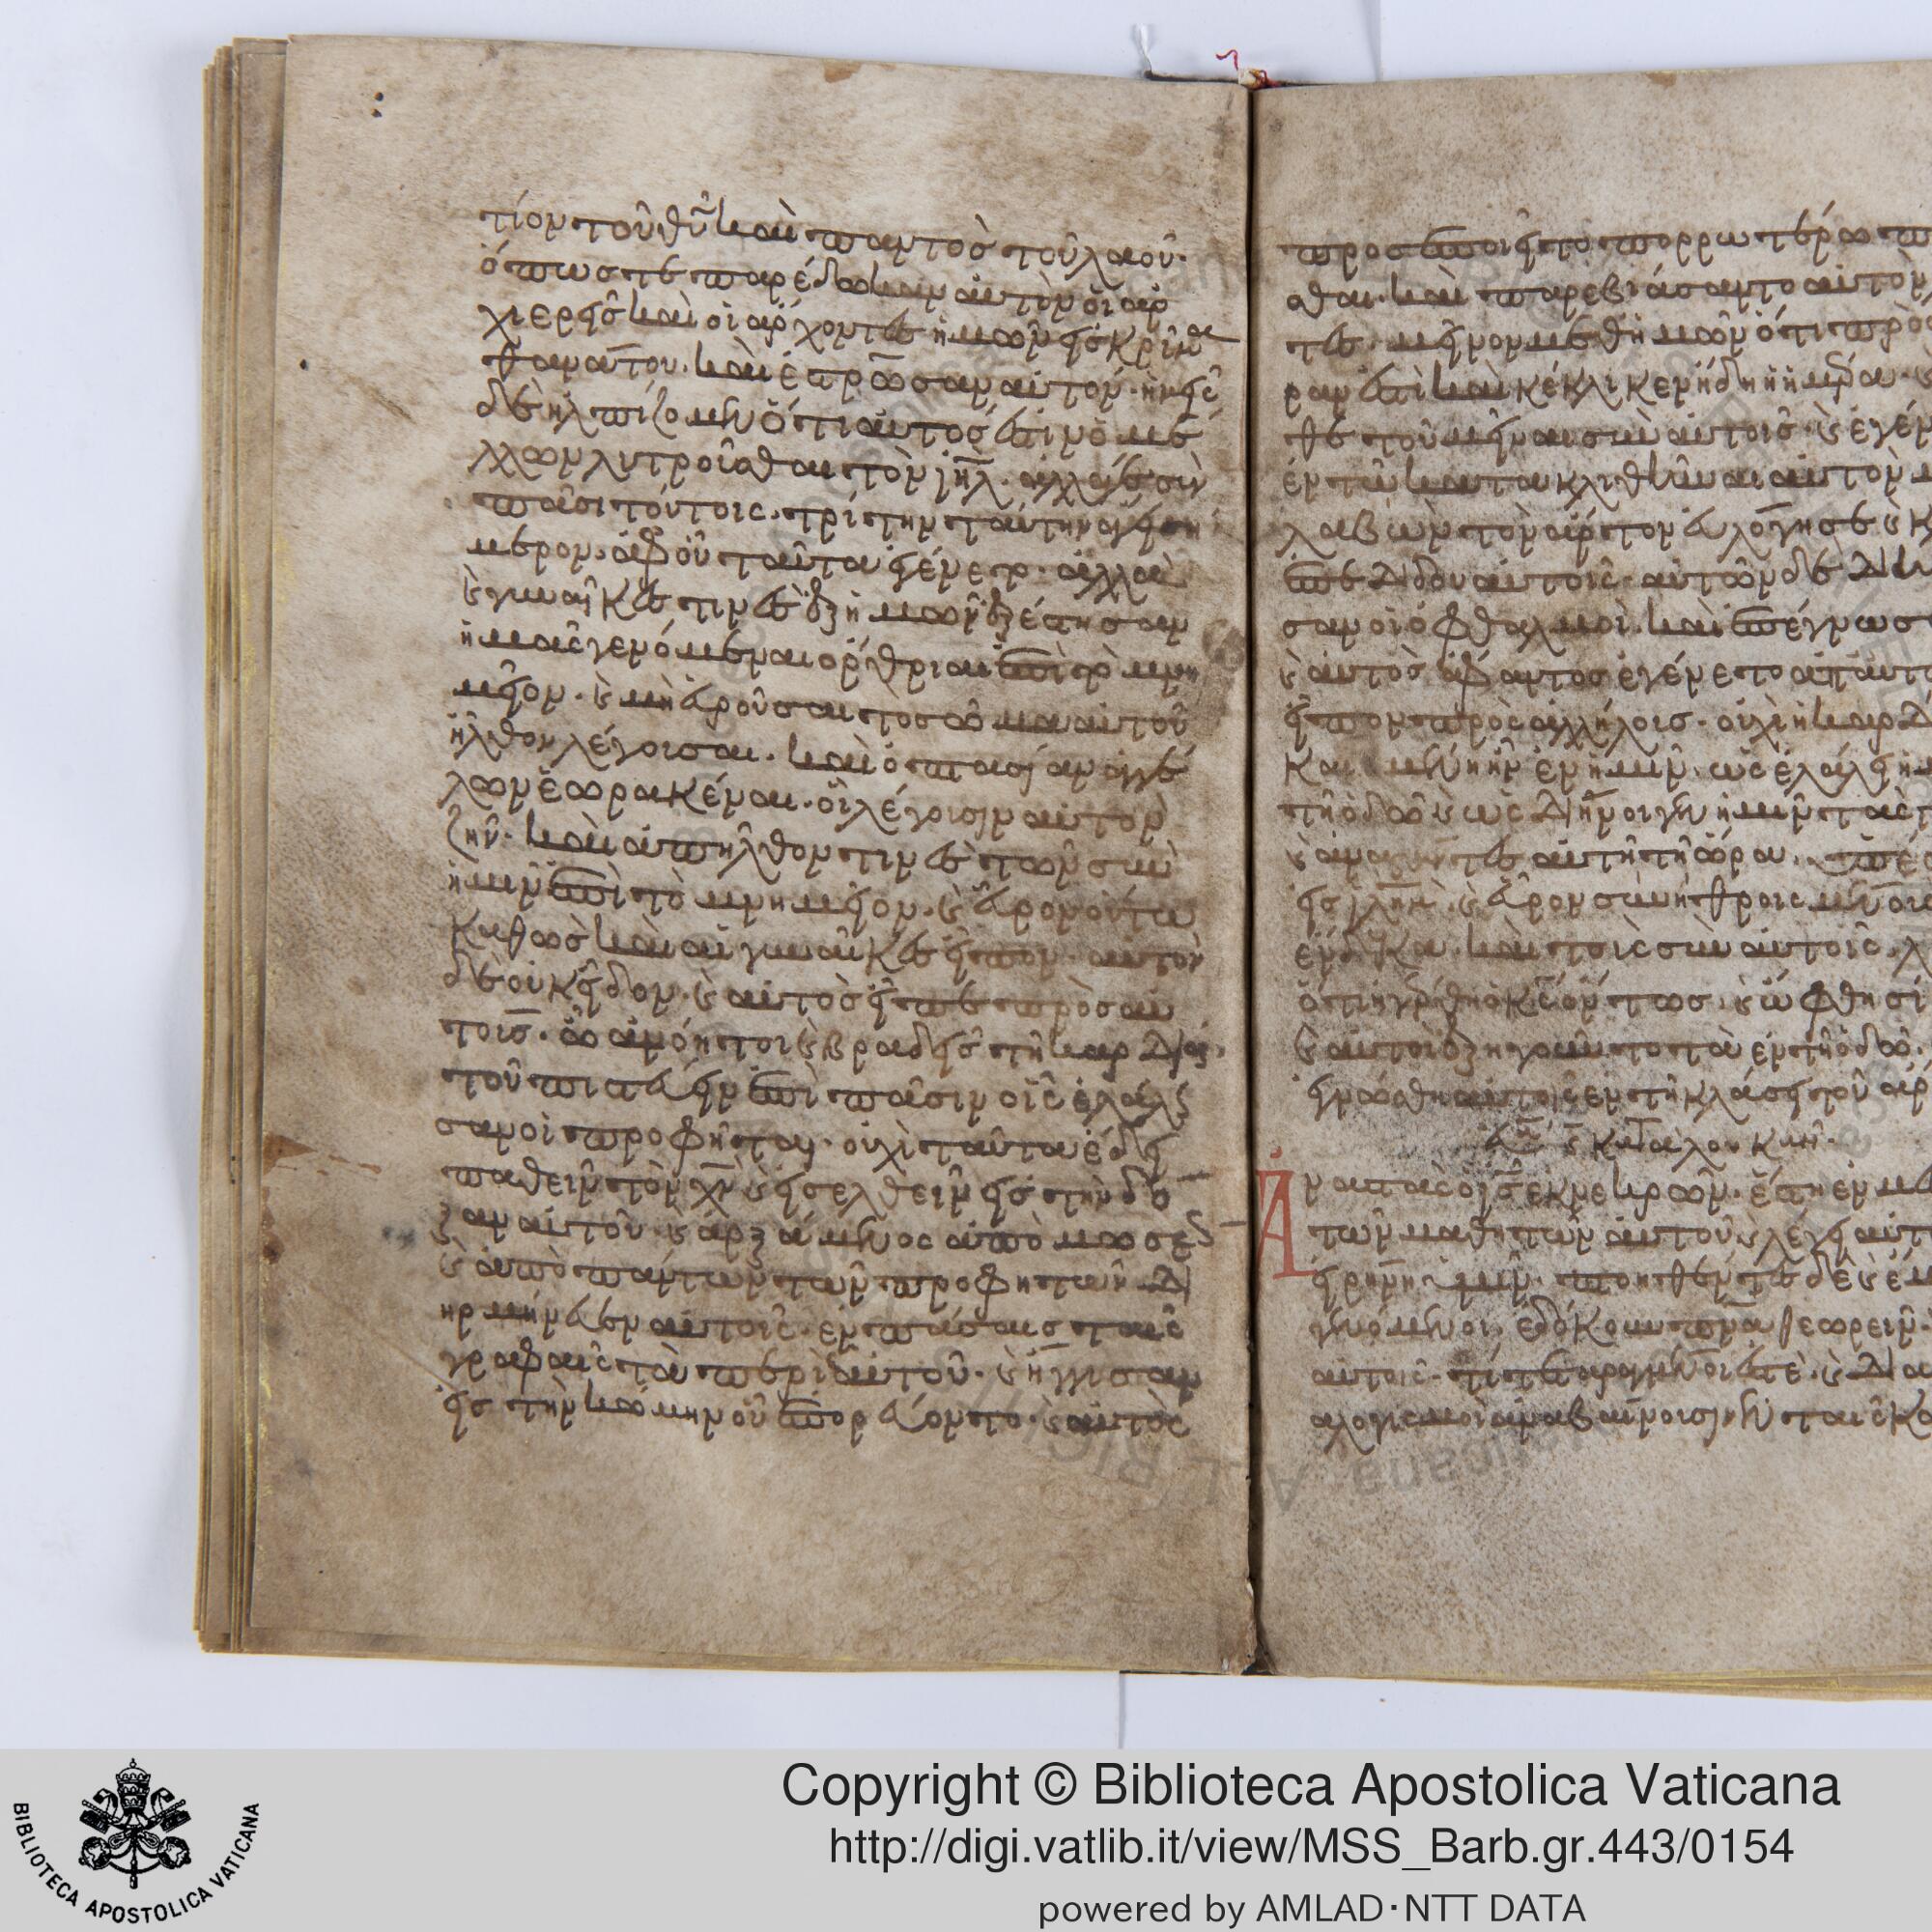 τίον τοῦ θυ̅ καὶ παντὸς τοῦ λαοῦ·
ὅπως τε παρέδωκαν αὐτὸν οἱ ἀρ
χιερεῖς καὶ οἱ ἄρχοντες ἡμῶν εἰς κρίμα
θανάτου· καὶ ἐσταύρωσαν αὐτόν· ἡμεῖς
δὲ ἠλπίζομεν ὅτι αὐτός ἐστιν ὁ μέ
λλων λυτροῦσθαι τὸν ιηλ· ἀλλάγε σὺν
πᾶσι τούτοις· τρίτην ταύτην ἄγει ση
μερον· ἀφ οὗ ταῦτα ἐγένετο· ἀλλὰ
ϗ γυναῖκες τινὲς ἐξ ἡμῶν ἐξέστησαν
ἡμᾶς γενόμεναι ὄρθριαι ἐπὶ τὸ μνη
μεῖον· ϗ μὴ εὑροῦσαι τὸ σῶμα αὐτοῦ
ἦλθον λέγουσαι· καὶ ὀπτασίαν ἀγγέ
λων ἑωρακέναι· οἳ λέγουσιν αὐτὸν
ζῆν· καὶ ἀπῆλθον τινὲς τῶν σὺν
ἡμῖν ἐπὶ τὸ μνημεῖον· ϗ εὗρον οὕτω
καθὼς καὶ αἱ γυναῖκες εἶπον· αὐτὸν
δὲ οὐκ εἶδον· ϗ αὐτὸς εἶπε πρὸς αὐ
τούς· ὦ ἀνόητοι ϗ βραδεῖς τῇ καρδίᾳ
τοῦ πιστεύειν ἐπὶ πᾶσιν οἷς ἐλάλη
σαν οἱ προφῆται· οὐχὶ ταῦτα ἔδει
παθεῖν τὸν χν̅ ϗ εἰσελθεῖν εἰς τὴν δό
ξαν αὐτοῦ· ϗ ἀρξάμενος ἀπὸ μωσέως
ϗ ἀπὸ πάντων τῶν προφητῶν δι
ηρμήνευεν αὐτοῖς· ἐν πάσαις ταῖς
γραφαῖς τὰ περὶ ἑαυτοῦ· ϗ ἤγγισαν
εἰς τὴν κώμην οὗ ἐπορεύοντο· ϗ αὐτὸς
προσεποιεῖτο πορρωτέρω
σθαι· καὶ παρεβιάσαντο αὐτὸν
τες· μεῖνον μεθ ἡμῶν ὅτι πρὸς
ραν ἐστὶ καὶ κέκλικεν ἤδη ἡ ἡμέρα·
θε τοῦ μεῖναι σὺν αὐτοῖς· ϗ ἐγέν
ἐν τῷ κατακλιθῆναι αὐτὸν
λαβὼν τὸν ἄρτον εὐλόγησε ϗ
ἐπεδίδου αὐτοῖς· αὐτῶν δὲ
σαν οἱ ὀφθαλμοὶ· καὶ ἐπέγνωσ
ϗ αὐτὸς ἄφαντος ἐγένετο ἀπ αὐτ
εἶπον πρὸς ἀλλήλους· οὐχὶ ἡ καρδ
και μένη ἦν ἐν ἡμῖν· ὡς ἐλάλει
τῇ ὁδῷ ϗ ὡς διήνοιγεν ἡμῖν τὰς
ϗ ἀναστάντες αὐτῇ τῇ ὥρᾳ·
εἰς ιλημ· ϗ εὗρον συνηθροισμένους
ἕνδεκα· καὶ τοὺς σὺν αὐτοῖς·
ὅτι ἠγέρθη ὁ κς̅ ὄντως· ϗ ὤφθη σί
ϗ αὐτοὶ ἐξηγοῦντο τὰ ἐν τῇ ὁδῷ·
ἐγνώσθη αὐτοῖς ἐν τῇ κλάσει τοῦ ἄρ
Αναστὰς ὁ ις̅ ἐκ νεκρῶν· ἔστη ἐν μέ
τῶν μαθητῶν αὐτοῦ ϗ λέγει αὐτ
εἰρήνη ὑμῖν· πτοηθέντες δὲ ϗ ἐμ
γενόμενοι ἐδόκουν πνα̅ θεωρεῖν·
αὐτοῖς· τί τεταραγμένοι ἐστὲ· ϗ δια
αλογισμοὶ ἀναβαίνουσιν ἐν ταῖς κα
Copyright © Biblioteca Apostolica Vaticana
http://digi.vatlib.it/view/MSS_Barb.gr.443/0154
powered by AMLAD·NTT DATA
BIBLIOTECA APOSTOLICA VATICANA